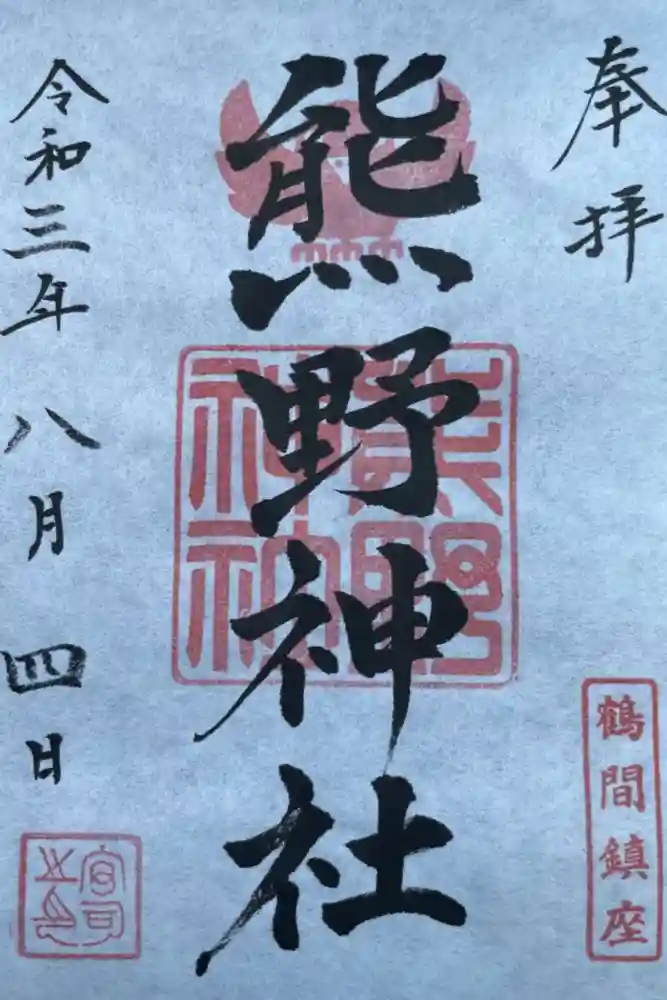 奉拝
鶴間鎮座
熊野神社
熊野
神社
令和三年八月四日
宮司
之印